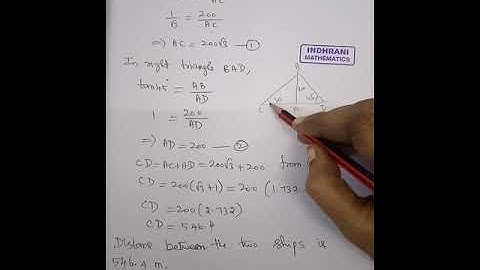 AC
1/√3 = 200/AC
⇒ AC = 200√3 — ①
In right triangle BAD,
tan45° = AB/AD
1 = 200/AD
⇒ AD = 200 — ②
CD = AC+AD = 200√3 + 200 from
CD = 200(√3+1) = 200 (1.732
CD = 200(2.732)
CD = 546.4
Distance between the two ships is
546.4 m.
INDHRANI
MATHEMATICS
B
200
30
45
C A D